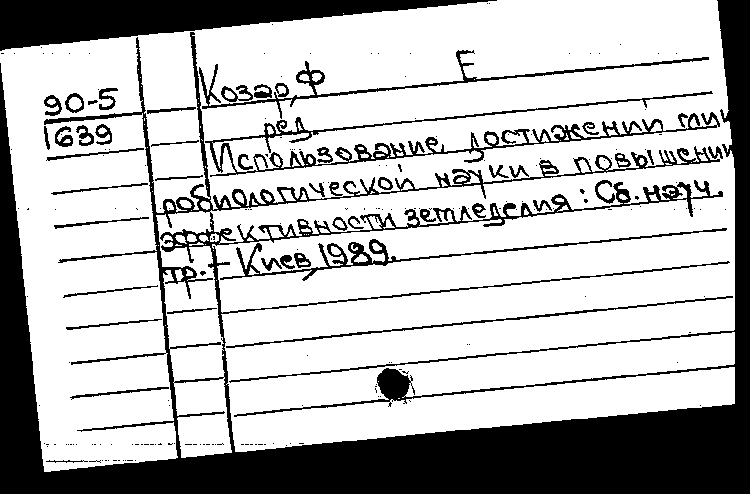 90-5
1639
Козар, Ф Е
ред.
Использование достижений мик
робиологической науки в повышении
эффективности земледелия : Сб. науч.
тр. - Киев, 1989.